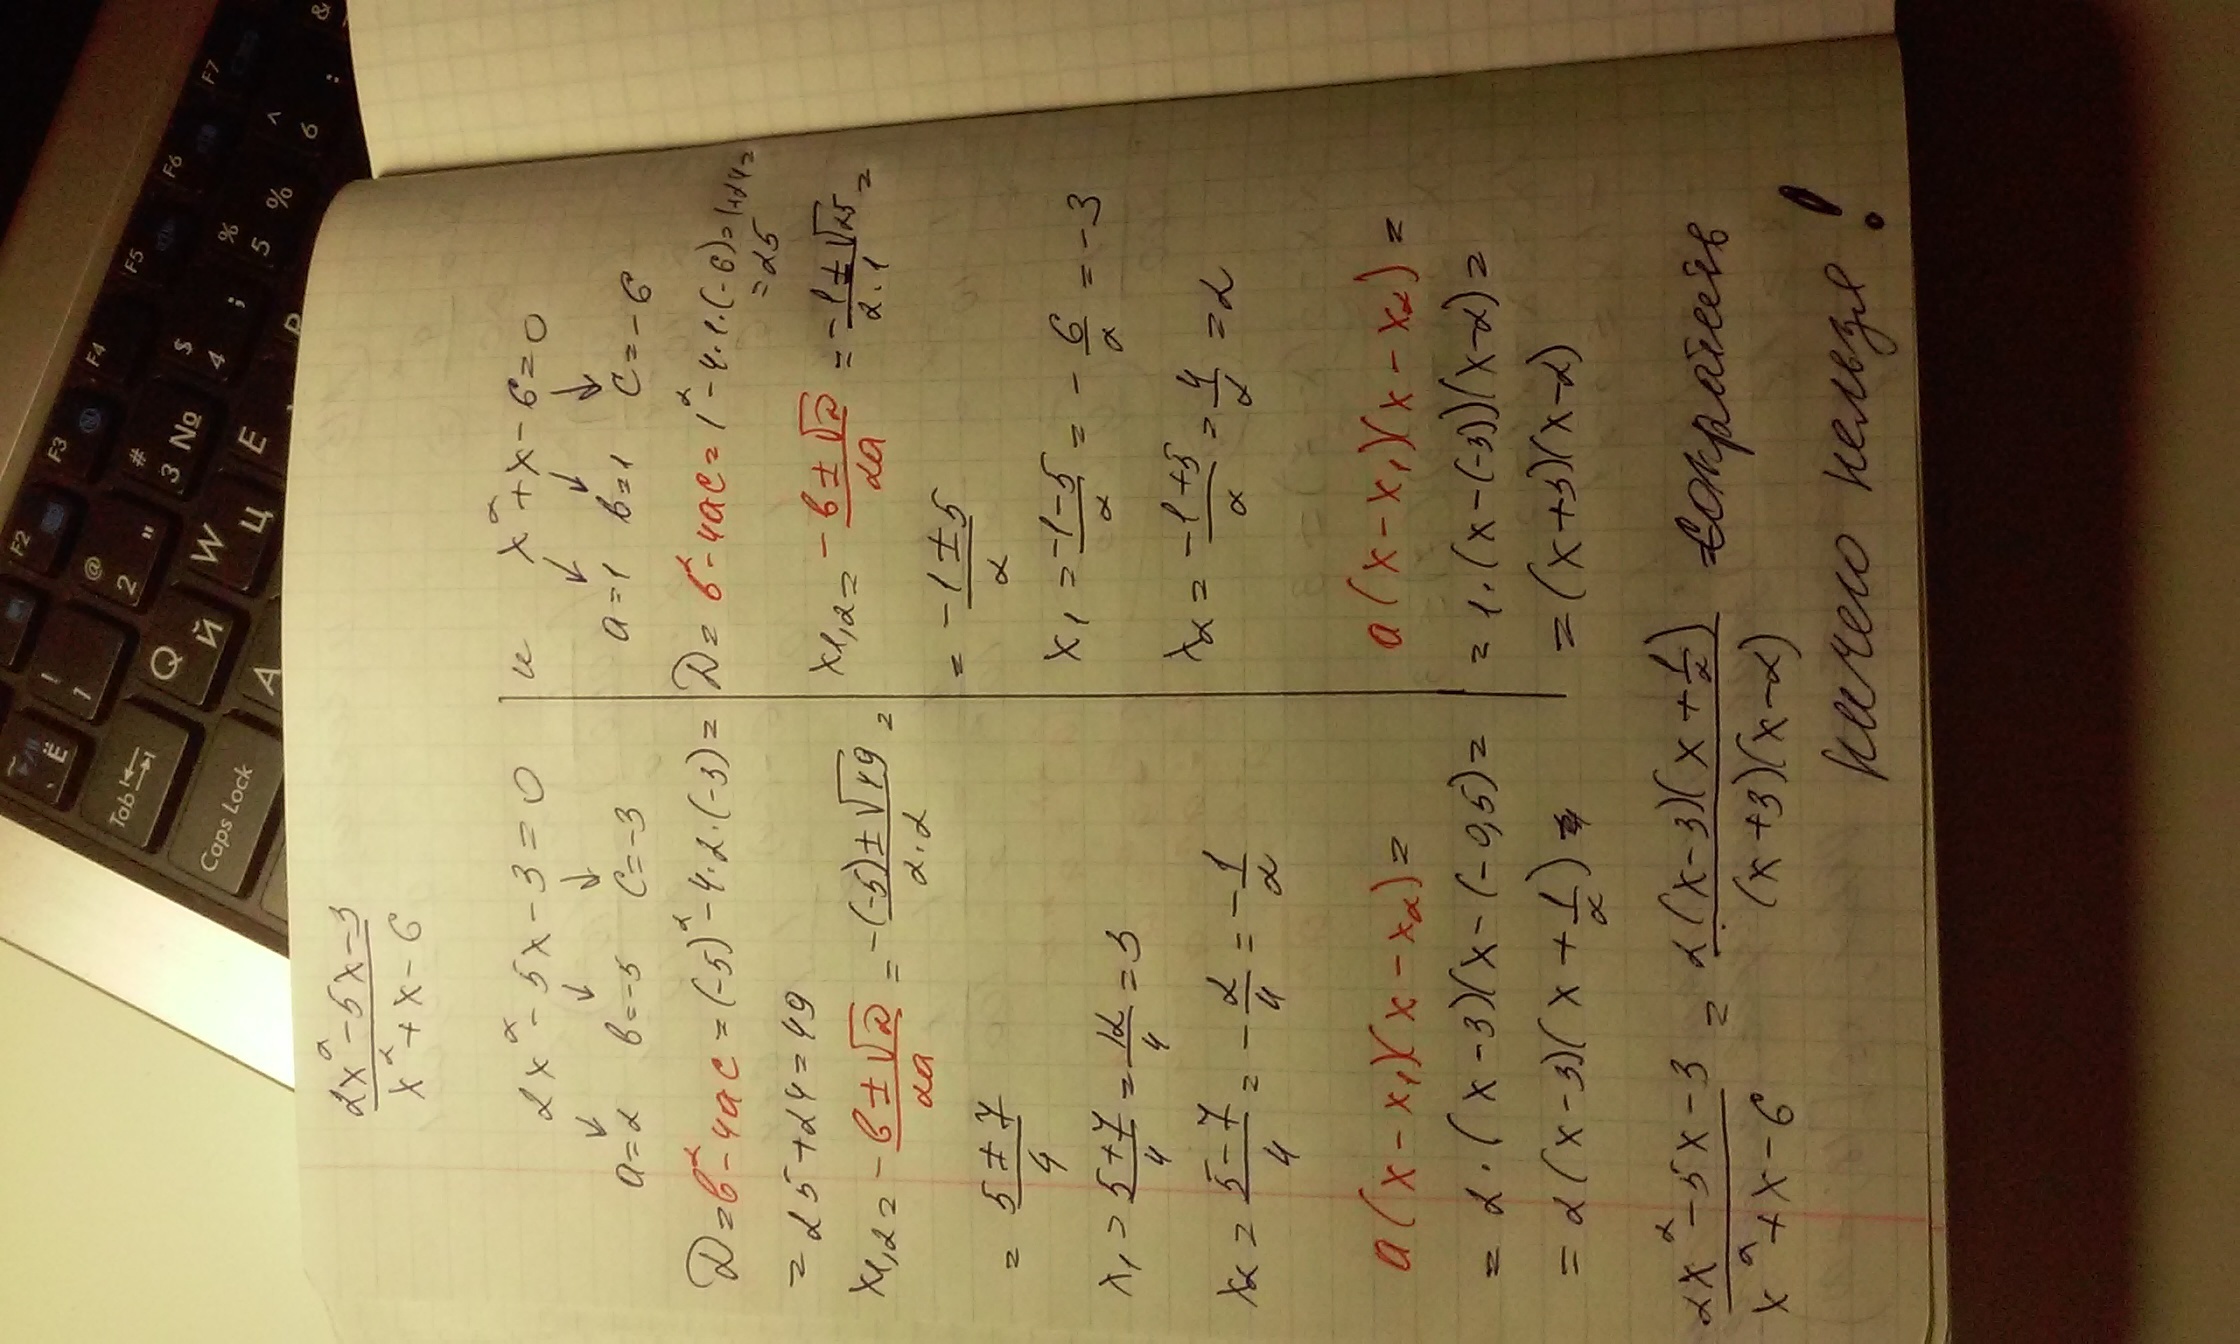 (2x² - 5x - 3)/(x² + x - 6)
2x² - 5x - 3 = 0
a = 2 b = -5 c = -3
D = b² - 4ac = (-5)² - 4·2·(-3) =
= 25 + 24 = 49
x1,2 = (-b ± √D)/2a = (-(-5) ± √49)/2·2 =
= (5 ± 7)/4
x1 = (5 + 7)/4 = 12/4 = 3
x2 = (5 - 7)/4 = -2/4 = -1/2
a(x - x1)(x - x2) =
= 2·(x - 3)(x - (-0,5) =
= 2(x - 3)(x + 1/2)
и x² + x - 6 = 0
a = 1 b = 1 c = -6
D = b² - 4ac = 1² - 4·1·(-6) = 1+24 =
= 25
x1,2 = (-b ± √D)/2a = (-1 ± √25)/2·1 =
= (-1 ± 5)/2
x1 = (-1 - 5)/2 = -6/2 = -3
x2 = (-1 + 5)/2 = 4/2 = 2
a(x - x1)(x - x2) =
= 1·(x - (-3))(x - 2) =
= (x + 3)(x - 2)
(2x² - 5x - 3)/(x² + x - 6) = 2(x - 3)(x + 1/2)/(x + 3)(x - 2) сокращать
ничего нельзя!
Tab
Caps Lock
Ё
! 1
@ 2 "
# 3 №
$ 4 ;
% 5 %
^ 6 :
&
Q Й
W Ц
E
A
F2
F3
F4
F5
F6
F7